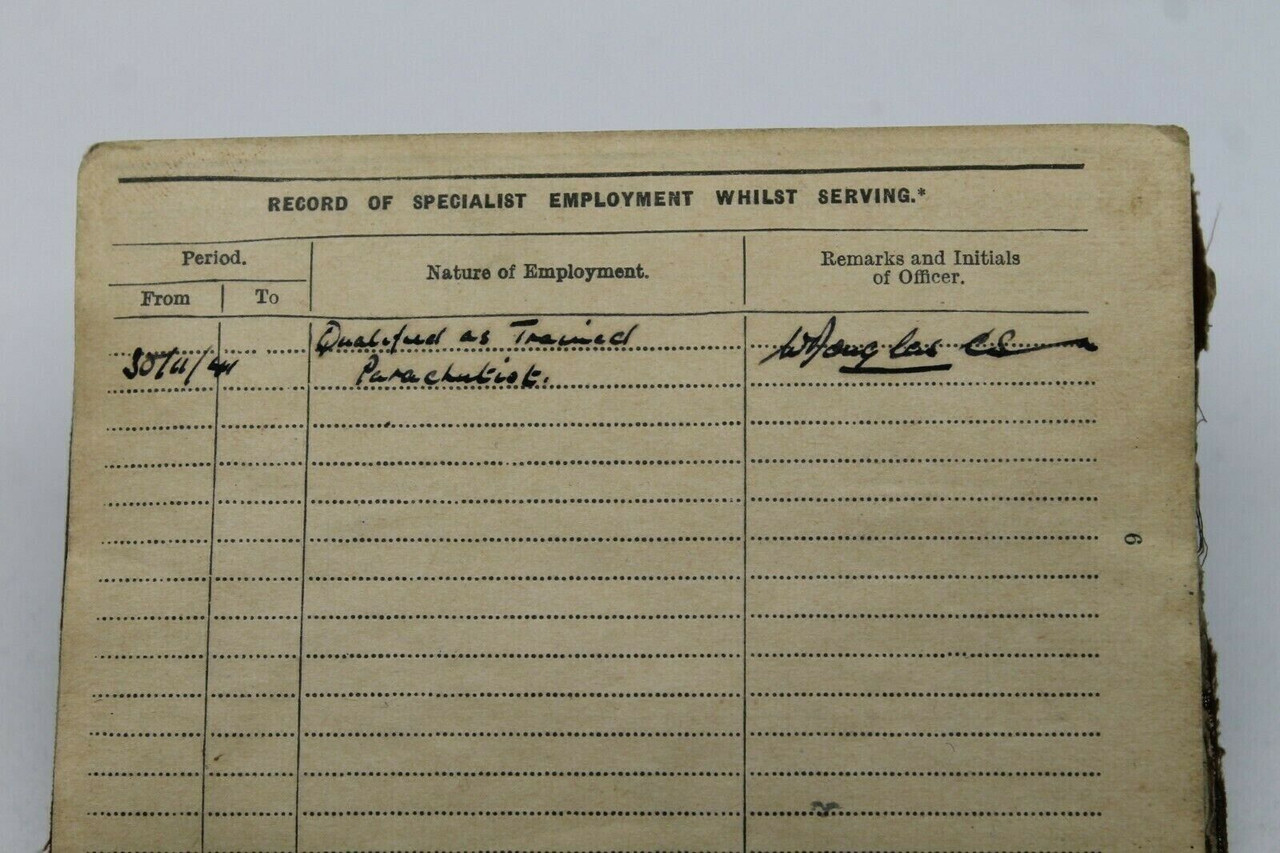 RECORD OF SPECIALIST EMPLOYMENT WHILST SERVING.*
Period.
Nature of Employment.
Remarks and Initials
of Officer.
From To
Qualified as Trained
30/11/44
Parachutist.
WDouglas
9